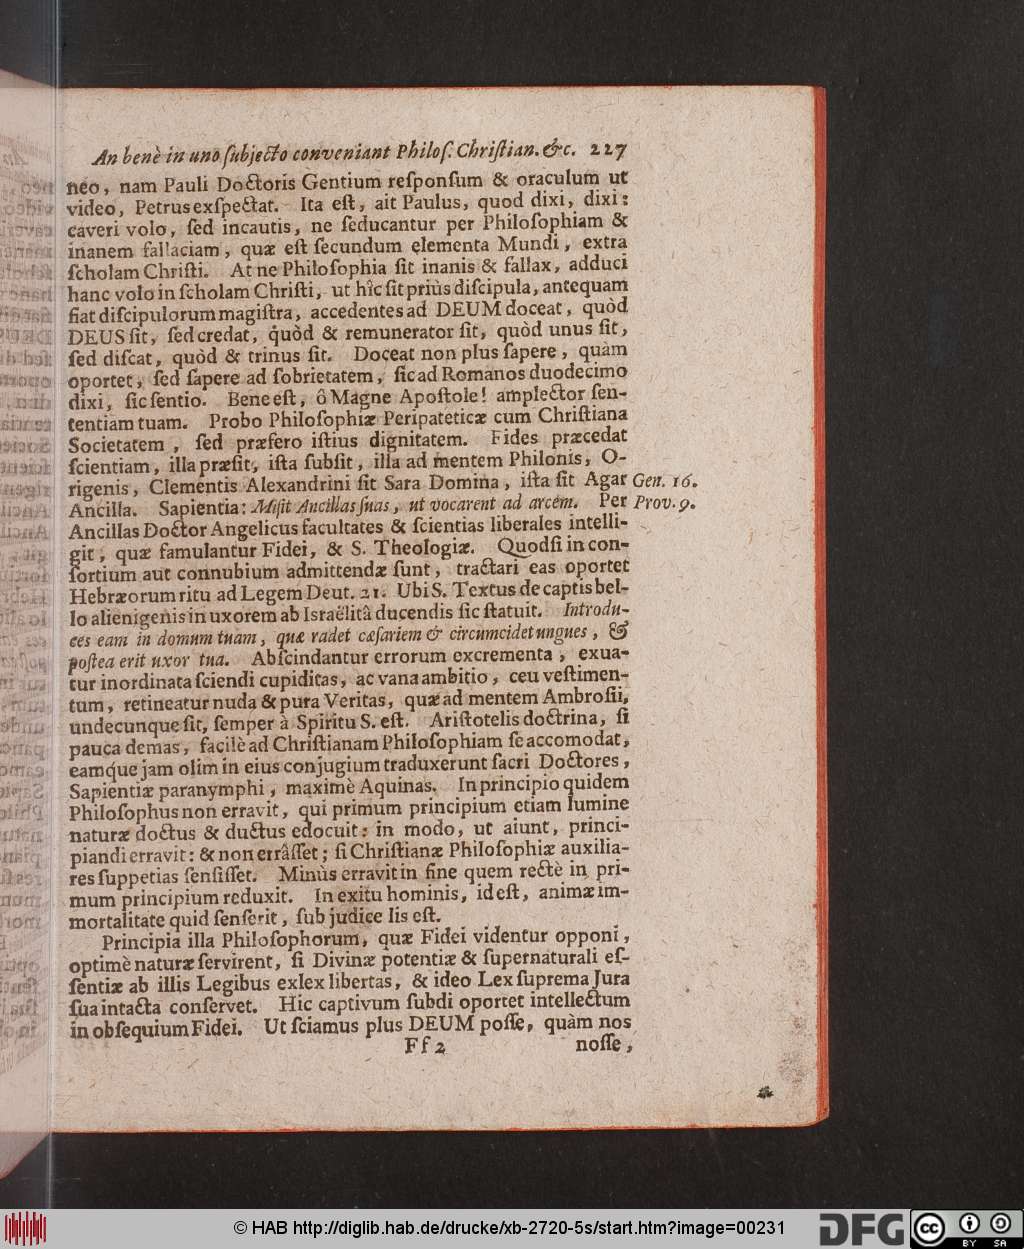 An benè in uno ſubjecto conveniant Philoſ. Chriſtian. &c. 227
neo, nam Pauli Doctoris Gentium reſponſum & oraculum ut
video, Petrus exſpectat. Ita eſt, ait Paulus, quod dixi, dixi:
caveri volo, ſed incautis, ne ſeducantur per Philoſophiam &
inanem fallaciam, quæ eſt ſecundum elementa Mundi, extra
ſcholam Chriſti. At ne Philoſophia ſit inanis & fallax, adduci
hanc volo in ſcholam Chriſti, ut hîc ſit priùs diſcipula, antequam
fiat diſcipulorum magiſtra, accedentes ad DEUM doceat, quòd
DEUS ſit, ſed credat, quòd & remunerator ſit, quòd unus ſit,
ſed diſcat, quòd & trinus ſit. Doceat non plus ſapere, quàm
oportet, ſed ſapere ad ſobrietatem, ſic ad Romanos duodecimo
dixi, ſic ſentio. Bene eſt, ô Magne Apoſtole! amplector ſen-
tentiam tuam. Probo Philoſophiæ Peripateticæ cum Chriſtiana
Societatem, ſed præfero iſtius dignitatem. Fides præcedat
ſcientiam, illa præſit, iſta ſubſit, illa ad mentem Philonis, O-
rigenis, Clementis Alexandrini ſit Sara Domina, iſta ſit Agar Gen. 16.
Ancilla. Sapientia: Miſit Ancillas ſuas, ut vocarent ad arcem. Per Prov. 9.
Ancillas Doctor Angelicus facultates & ſcientias liberales intelli-
git, quæ famulantur Fidei, & S. Theologiæ. Quodſi in con-
ſortium aut connubium admittendæ ſunt, tractari eas oportet
Hebræorum ritu ad Legem Deut. 21. Ubi S. Textus de captis bel-
lo alienigenis in uxorem ab Israëlitâ ducendis ſic ſtatuit. Introdu-
ces eam in domum tuam, quæ radet cæſariem & circumcidet ungues, &
poſtea erit uxor tua. Abſcindantur errorum excrementa, exua-
tur inordinata ſciendi cupiditas, ac vana ambitio, ceu veſtimen-
tum, retineatur nuda & pura Veritas, quæ ad mentem Ambroſii,
undecunque ſit, ſemper à Spiritu S. eſt. Ariſtotelis doctrina, ſi
pauca demas, facilè ad Chriſtianam Philoſophiam ſe accomodat,
eamq́ue jam olim in eius conjugium traduxerunt ſacri Doctores,
Sapientiæ paranymphi, maximè Aquinas. In principio quidem
Philoſophus non erravit, qui primum principium etiam lumine
naturæ doctus & ductus edocuit: in modo, ut aiunt, princi-
piandi erravit: & non errâſſet; ſi Chriſtianæ Philoſophiæ auxilia-
res ſuppetias ſenſiſſet. Minùs erravit in fine quem rectè in pri-
mum principium reduxit. In exitu hominis, id eſt, animæ im-
mortalitate quid ſenſerit, ſub judice lis eſt.
Principia illa Philoſophorum, quæ Fidei videntur opponi,
optimè naturæ ſervirent, ſi Divinæ potentiæ & ſupernaturali eſ-
ſentiæ ab illis Legibus exlex libertas, & ideo Lex ſuprema Jura
ſua intacta conſervet. Hic captivum ſubdi oportet intellectum
in obſequium Fidei. Ut ſciamus plus DEUM poſſe, quàm nos
Ff 2 noſſe,
© HAB http://diglib.hab.de/drucke/xb-2720-5s/start.htm?image=00231 DFG cc BY SA